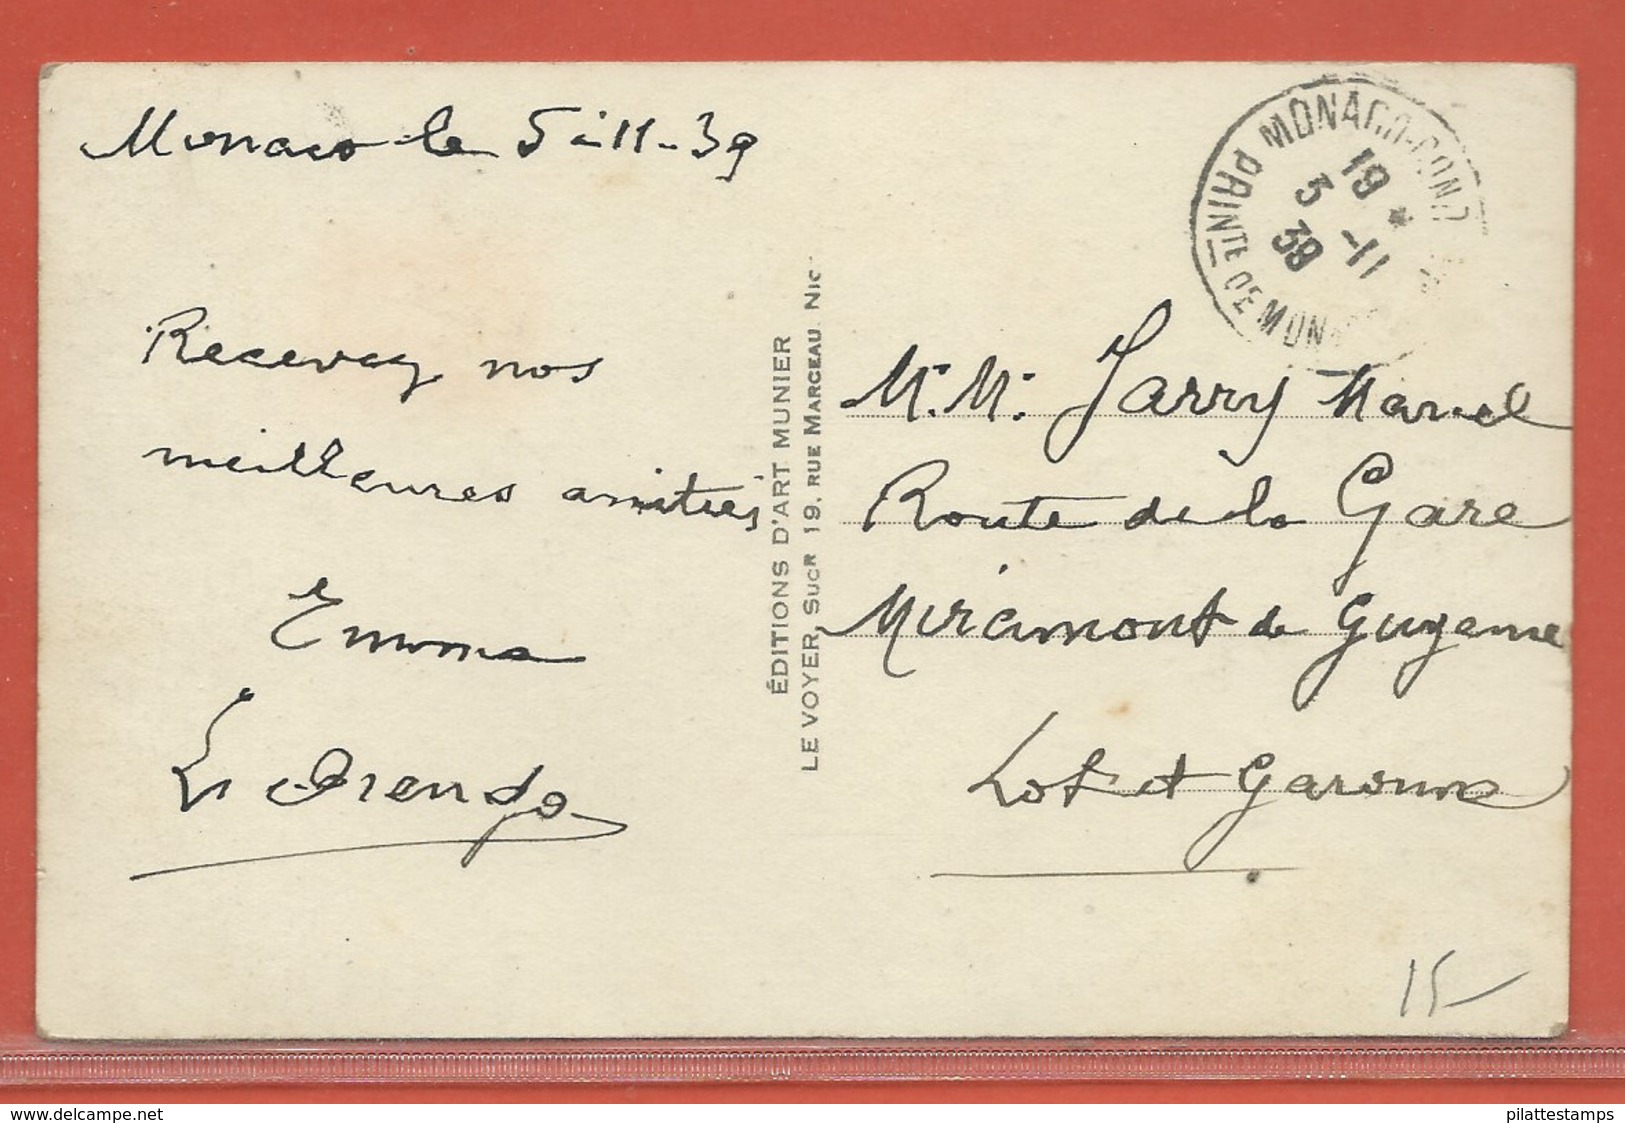 Monaco le 5-11-39
Recevez nos
meilleures amitiés
Emma
MONACO-COND
19 *
5 -11
39
PRINTE DE MON
ÉDITIONS D'ART MUNIER
LE VOYER SUCR 19, RUE MARCEAU. NIC
Mr. M. Jarry Marcel
Route de la Gare
Miramont de Guyenne
Lot et Garonne
15-
www.delcampe.net
pilattestamps